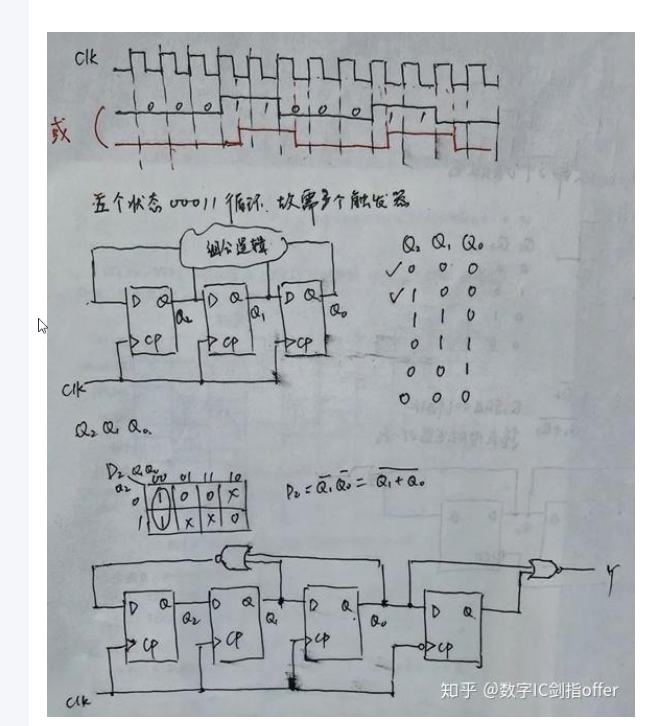 Clk
0 0 0 1 1 0 0 0 1 1
或 (
五个状态 00011 循环. 故需3个触发器
组合逻辑
Q₂ Q₁ Q₀
✓ 0 0 0
✓ 1 0 0
1 1 0
0 1 1
0 0 1
0 0 0
D Q Q₂ D Q Q₁ D Q Q₀
CP CP CP
Clk
Q₂ Q₁ Q₀
D₂ Q₁Q₀ 00 01 11 10
Q₂
0 1 0 0 X
1 1 X X 0
D₂ = \overline{Q₁} \overline{Q₀} = \overline{Q₁ + Q₀}
Y
D Q Q₂ D Q Q₁ D Q Q₀ D Q
CP CP CP CP
Clk
知乎 @数字IC剑指offer